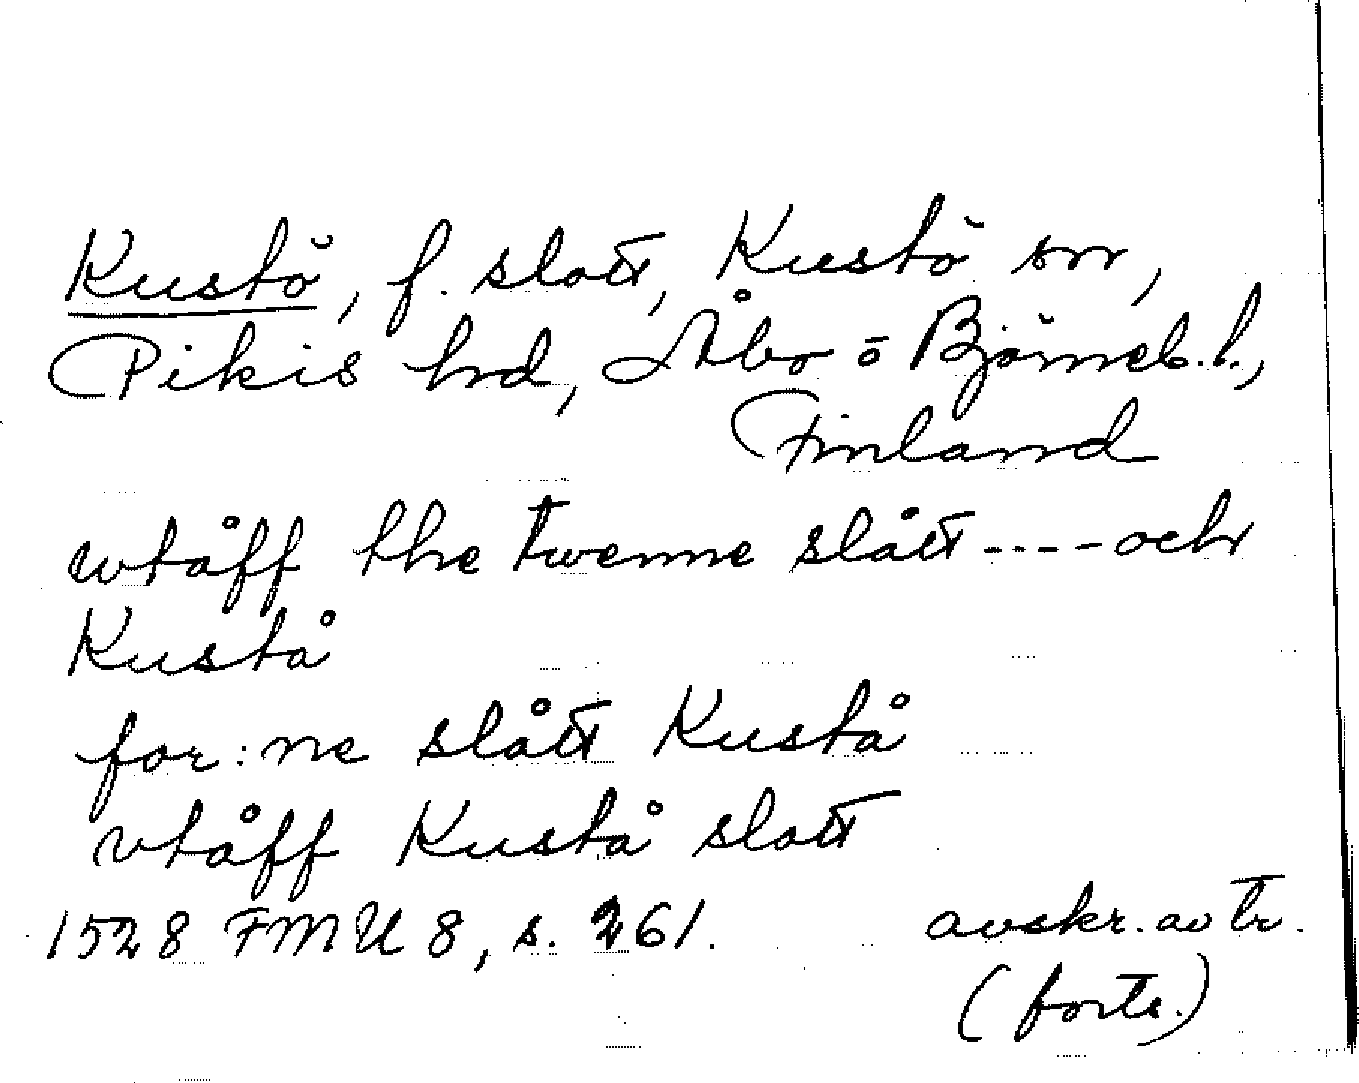 Kustö, f. slott, Kustö sn,
Pikis hd, Åbo o Björneb. l.,
Finland
wtåff the twenne slått ---- och
Kustå
for:ne slått Kustå
vtåff Kustå slott
1528 FMU 8, s. 261. avskr. av tr.
(forts.)